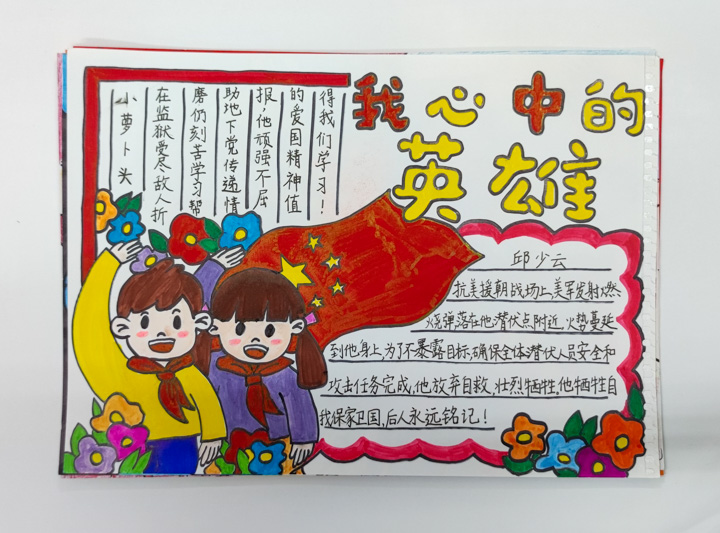 我心中的
英雄
小萝卜头
在监狱受尽敌人折
磨仍刻苦学习帮
助地下党传递情
报，他顽强不屈
的爱国精神值
得我们学习！
邱少云
抗美援朝战场上,美军发射燃
烧弹落在他潜伏点附近,火势蔓延
到他身上,为了不暴露目标,确保全体潜伏人员安全和
攻击任务完成,他放弃自救,壮烈牺牲。他牺牲自
我保家卫国,后人永远铭记！